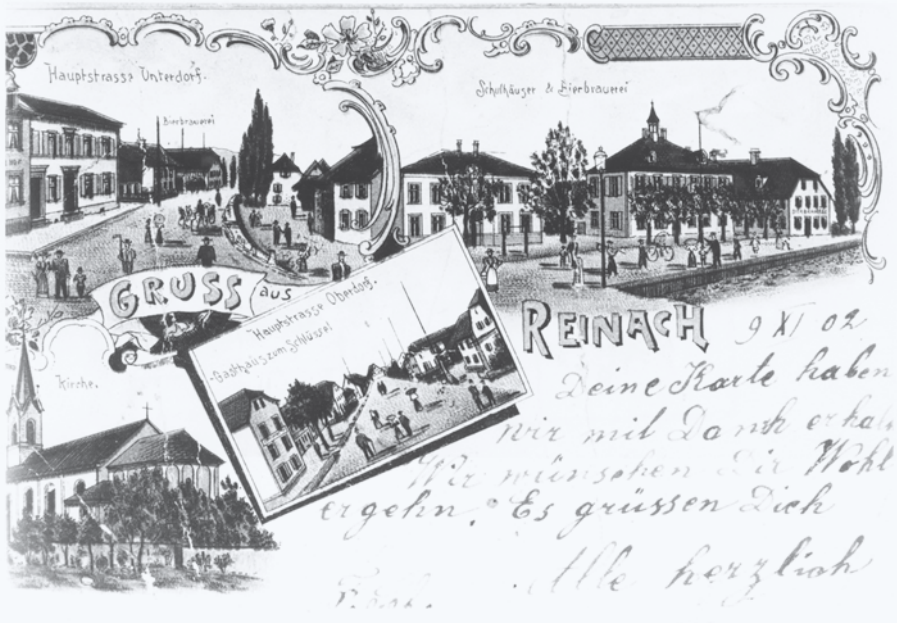 Hauptstrasse Unterdorf.
Bierbrauerei
Schulhäuser & Bierbrauerei
GRUSS aus
REINACH
Hauptstrasse Oberdorf.
Gasthaus zum Schlüssel
Kirche.
9 XI 02
Deine Karte haben
wir mit Dank
Wir wünschen Dir Wohl
ergehn. Es grüssen Dich
Alle herzlich